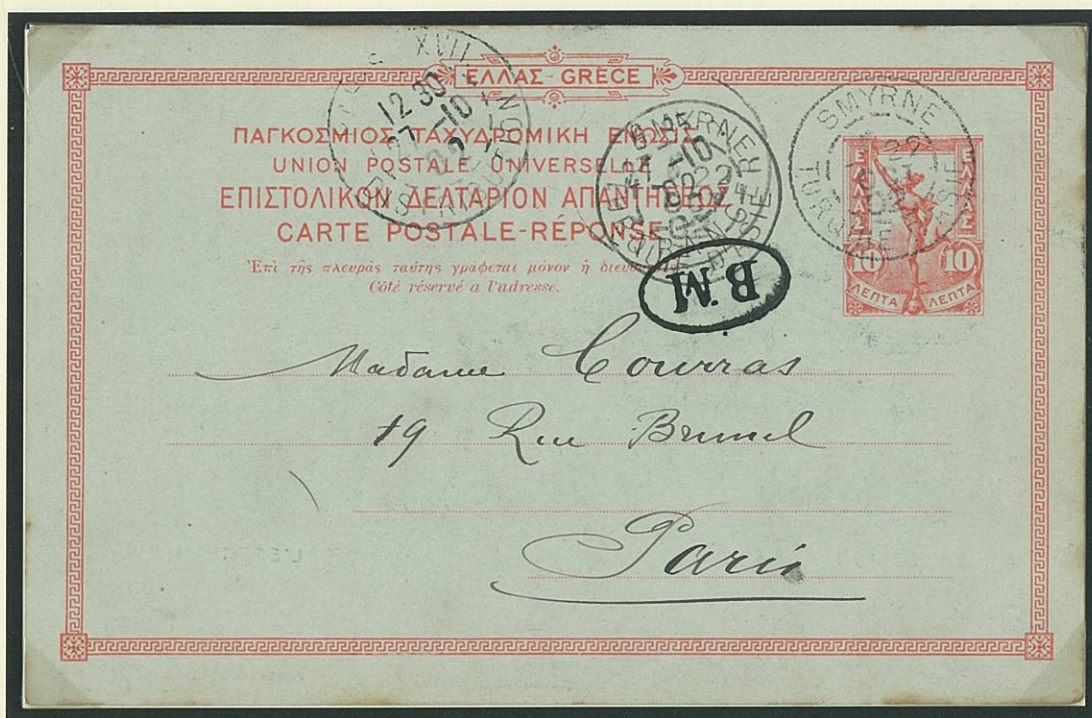 ΕΛΛΑΣ-GRÈCE
ΠΑΓΚΟΣΜΙΟΣ ΤΑΧΥΔΡΟΜΙΚΗ ΕΝΩΣΙΣ
UNION POSTALE UNIVERSELLE
ΕΠΙΣΤΟΛΙΚΟΝ ΔΕΛΤΑΡΙΟΝ ΑΠΑΝΤΗΣΕΩΣ
CARTE POSTALE-RÉPONSE
Ἐπὶ τῆς πλευρᾶς ταύτης γράφεται μόνον ἡ
Côté réservé a l'adresse.
XVII
12 30
27 -10
SMYRNE
22
TURQUIE D'ASIE
SMYRNE
BM
ΕΛΛΑΣ
ΕΛΛΑΣ
10
10
ΛΕΠΤΑ
ΛΕΠΤΑ
Madame Courras
19 Rue Brunel
Paris